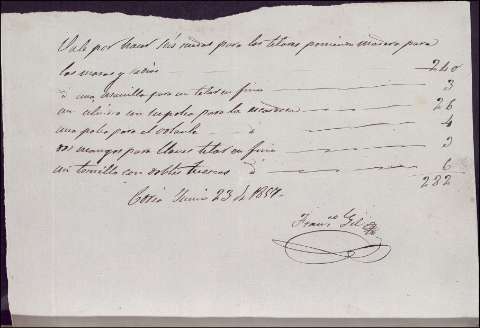 Vale por hacer seis ruedas para los telares poniendo madera para
las mazas y radios 240
a una armilla para un telar en fino 3
un cilindro con su polea para la 26
una polea para el volante a 4
dos mangos para llaves telar en fino 3
un tornillo con dobles tuercas a 6
282
Junio 23 de 1857.
Franco Gil